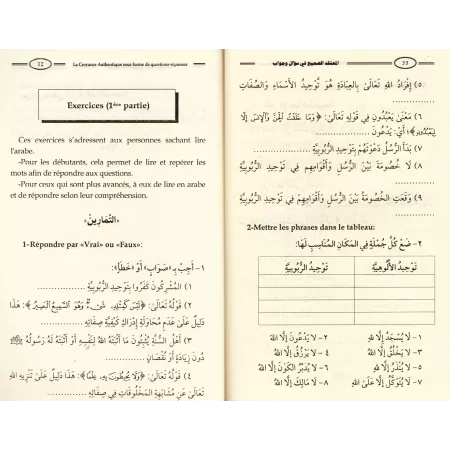 32
La Croyance Authentique sous forme de questions-réponses
Exercices (1ère partie)
Ces exercices s'adressent aux personnes sachant lire
l'arabe.
-Pour les débutants, cela permet de lire et repérer les
mots afin de répondre aux questions.
-Pour ceux qui sont plus avancés, à eux de lire en arabe
et de répondre selon leur compréhension.
«التَّمَارِينُ»
1-Répondre par «Vrai» ou «Faux»:
١- أَجِبْ بِـ «صَوَابٍ» أَوْ «خَطَأٍ»:
١) الْمُشْرِكُونَ كَفَرُوا بِتَوْحِيدِ الرُّبُوبِيَّةِ ..................
٢) قَوْلُهُ تَعَالَىٰ: ﴿لَيْسَ كَمِثْلِهِ شَيْءٌ وَهُوَ السَّمِيعُ الْبَصِيرُ﴾: هَذَا
دَلِيلٌ عَلَىٰ عَدَمِ مُحَاوَلَةِ إِدْرَاكِ كَيْفِيَّةِ صِفَاتِهِ ..................
٣) أَهْلُ السُّنَّةِ يُثْبِتُونَ مَا أَثْبَتَهُ اللهُ لِنَفْسِهِ أَوْ أَثْبَتَهُ لَهُ رَسُولُهُ ﷺ
دُونَ زِيَادَةٍ أَوْ نُقْصَانٍ ..................
٤) قَوْلُهُ تَعَالَىٰ: ﴿وَلَا يُحِيطُونَ بِهِ عِلْمًا﴾: هَذَا دَلِيلٌ عَلَىٰ تَنْزِيهِ اللهِ
تَعَالَىٰ عَنْ مُشَابَهَةِ الْمَخْلُوقَاتِ فِي صِفَاتِهِ ..................
المعتقد الصحيح في سؤال وجواب
33
٥) إِفْرَادُ اللهِ تَعَالَىٰ بِالْعِبَادَةِ هُوَ تَوْحِيدُ الْأَسْمَاءِ وَالصِّفَاتِ
..................
٦) مَعْنَىٰ يَعْبُدُونِ فِي قَوْلِهِ تَعَالَىٰ: ﴿وَمَا خَلَقْتُ الْجِنَّ وَالْإِنْسَ إِلَّا
لِيَعْبُدُونِ﴾؛ أَيْ: يَدْعُونَ ..................
٧) بَدَأَ الرُّسُلُ دَعْوَتَهُمْ بِتَوْحِيدِ الرُّبُوبِيَّةِ ..................
٨) لَا خُصُومَةَ بَيْنَ الرُّسُلِ وَأَقْوَامِهِمْ فِي تَوْحِيدِ الرُّبُوبِيَّةِ
..................
٩) وَقَعَتِ الْخُصُومَةُ بَيْنَ الرُّسُلِ وَأَقْوَامِهِم فِي تَوْحِيدِ الرُّبُوبِيَّةِ
..................
2-Mettre les phrases dans le tableau:
٢- ضَعْ كُلَّ جُمْلَةٍ فِي الْمَكَانِ الْمُنَاسِبِ لَهَا:
تَوْحِيدُ الْأُلُوهِيَّةِ تَوْحِيدُ الرُّبُوبِيَّةِ
١- لَا يُسْجَدُ إِلَّا لِلهِ ٢- لَا يَدْعُونَ إِلَّا اللهَ
٣- لَا يَخْلُقُ إِلَّا اللهُ ٤- لَا يَرْزُقُ إِلَّا اللهُ
٥- لَا يُنْذَرُ إِلَّا لِلهِ ٦- لَا يُدَبِّرُ الْكَوْنَ إِلَّا اللهُ
٧- لَا يُتَوَكَّلُ إِلَّا عَلَىٰ اللهِ ٨- لَا مَالِكَ إِلَّا اللهُ